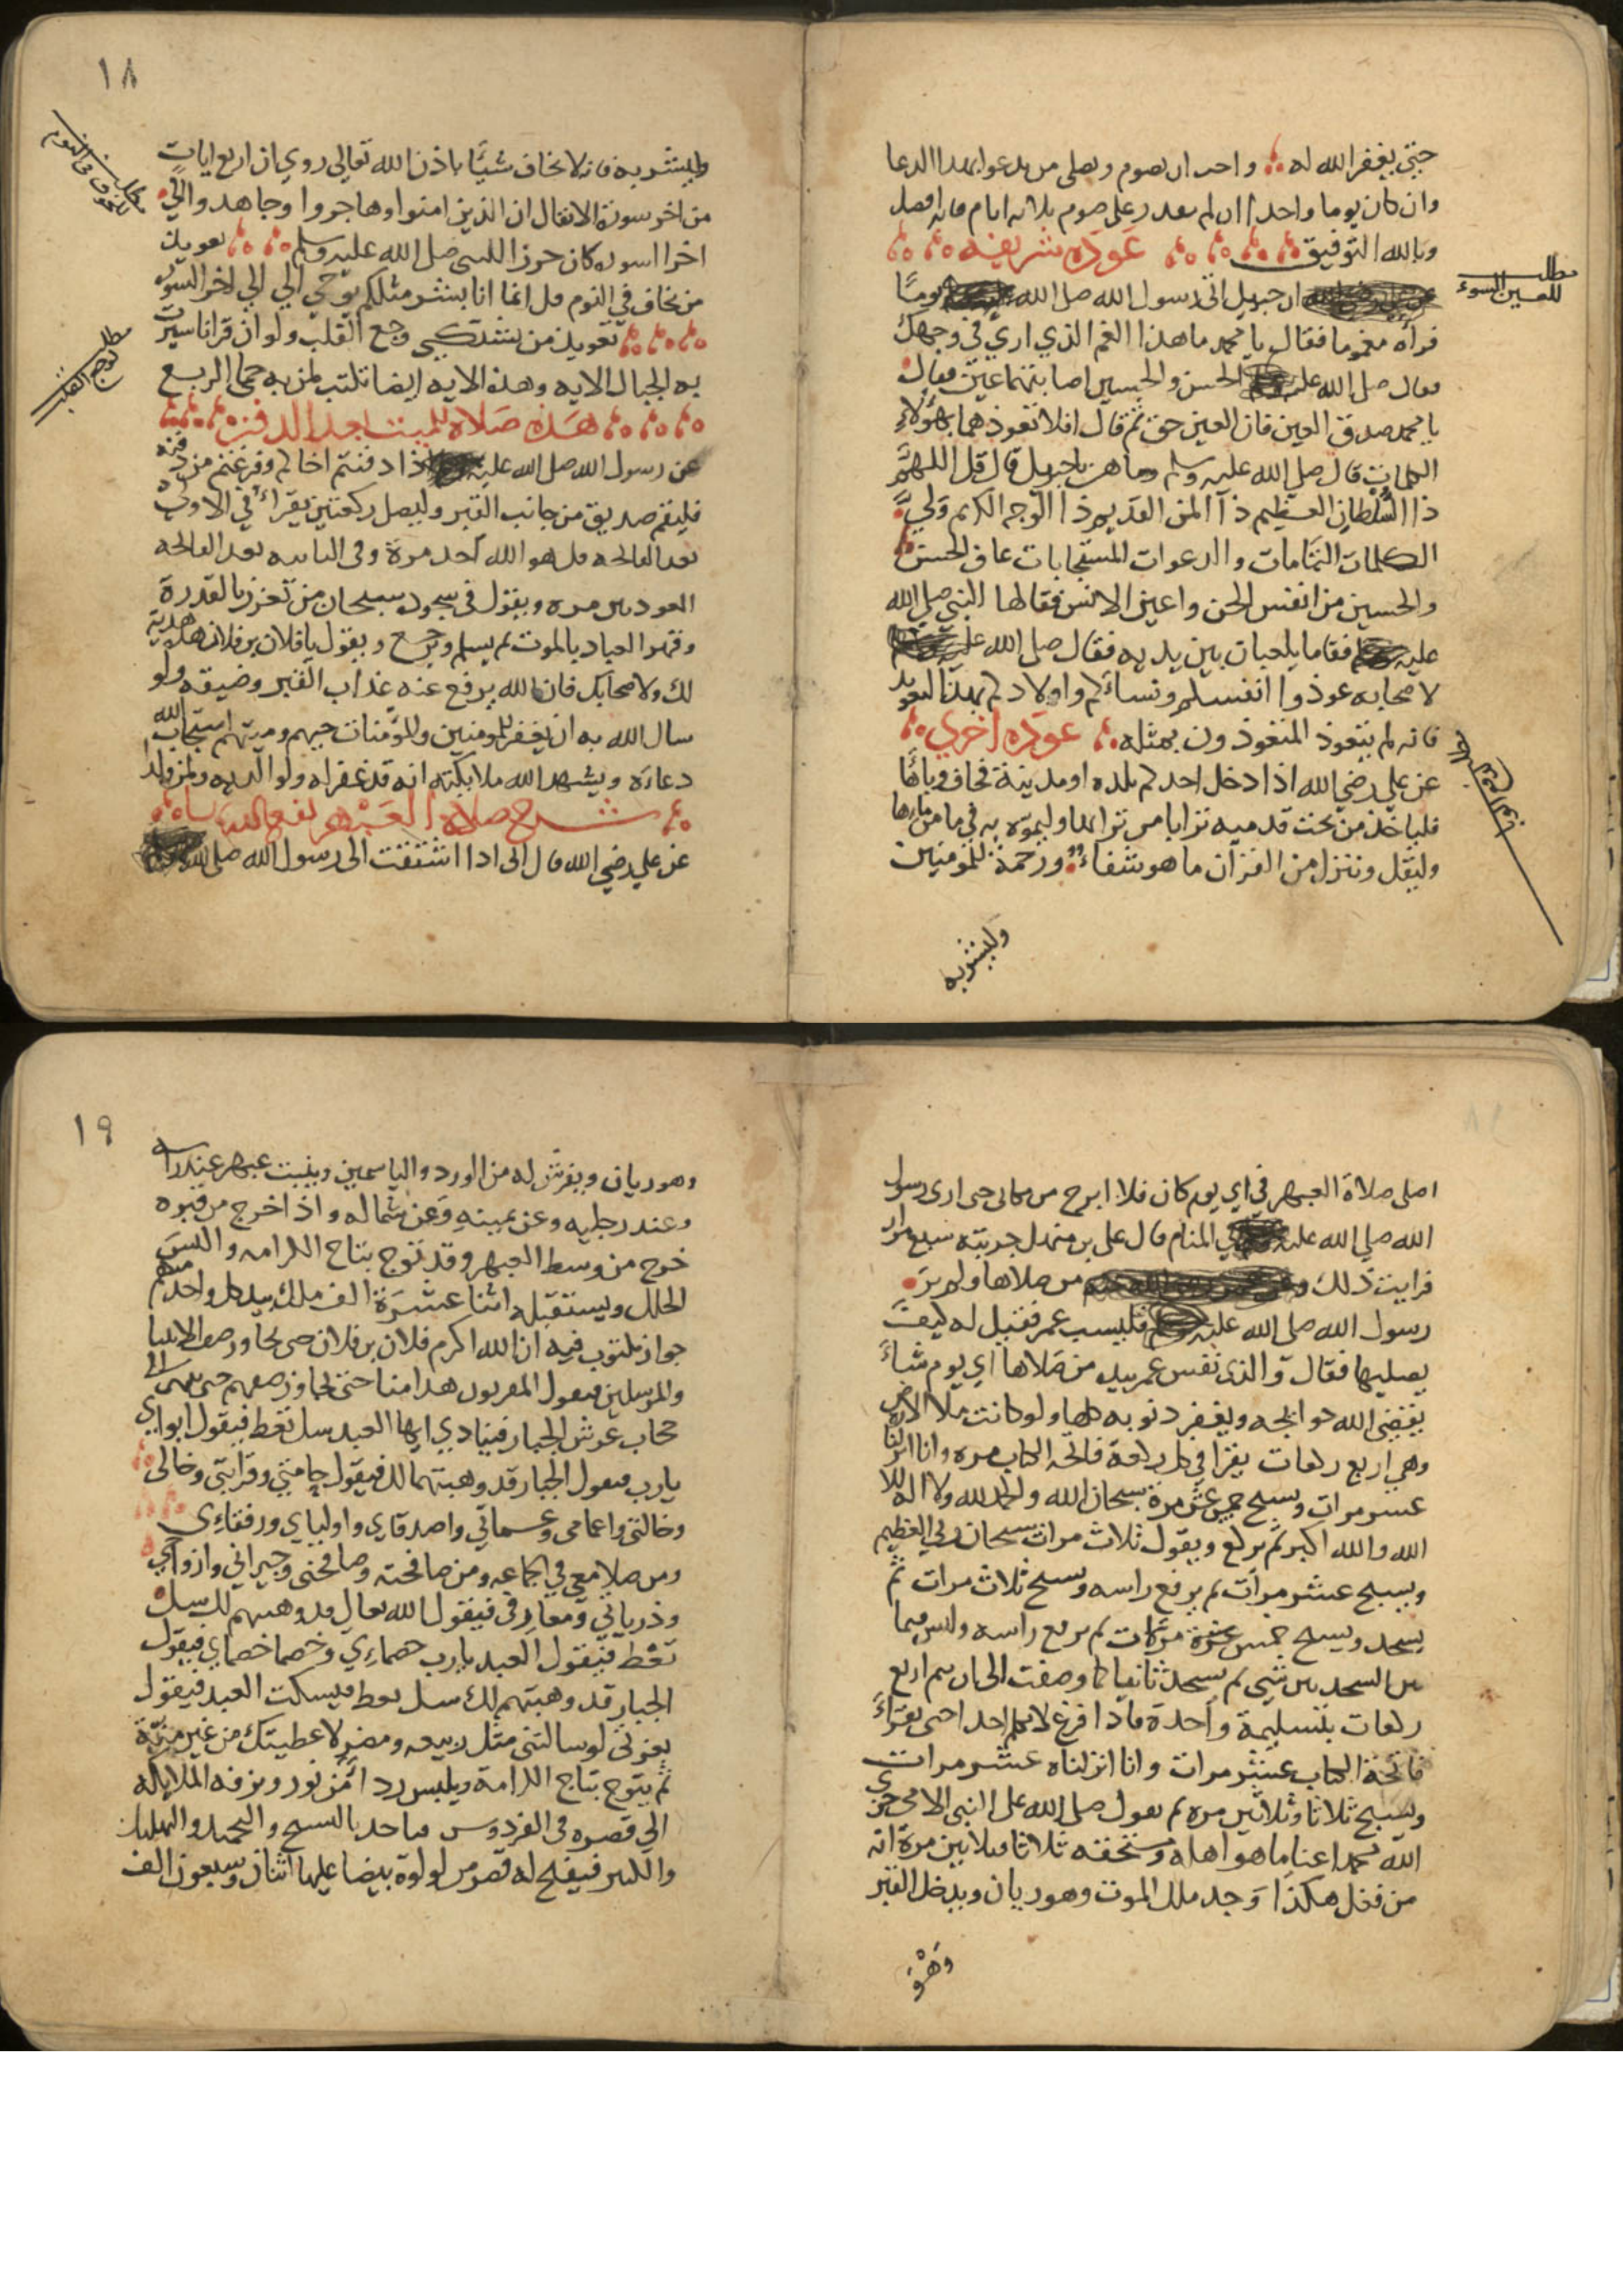 حتى يغفر الله له واحب ان يصوم ويصلى من يدعو بهذا الدعا
وان كان يوما واحدا ان لم يقدر على صوم ثلاثه ايام فانه افضل
وبالله التوفيق عوذه شريفه
مطلب للعين السوء
ان جبريل اتى رسول الله صلى الله يوما
فرآه مغموما فقال يا محمد ما هذا الغم الذي اري في وجهك
فقال صلى الله عليه الحسن والحسين اصابتهما عين فقال
يا محمد صدق العين فان العين حق ثم قال افلا تعوذهما بهؤلاء
الكلمات قال صلى الله عليه وسلم وما هن يا جبريل قال قل اللهم
ذا السلطان العظيم ذا المن القديم ذا الوجه الكريم ولي
الكلمات التامات والدعوات المستجابات عاف الحسن
والحسين من انفس الجن واعين الانس فقالها النبي صلى الله
عليه فقاما يلعبان بين يديه فقال صلى الله عليه
لاصحابه عوذوا انفسكم ونساءكم واولادكم بهذا التعويذ
فانه لم يتعوذ المتعوذون بمثله عوذه اخري
عن علي رضي الله اذا دخل احدكم بلده او مدينة فخاف وباها
فلياخذ من تحت قدميه ترابا من ترابها وليموه به في ما من ماءها
وليقل وننزل من القرآن ما هو شفاء ورحمة للمومنين
وليشربه
١٨
وليشربه فانه لا يخاف شيا باذن الله تعالى روي ان اربع ايات
مطلب للخوف في النوم
من اخر سورة الانفال ان الذين امنوا وهاجروا وجاهدوا الى
اخر السوره كان حرز النبى صلى الله عليه وسلم تعويذ
من يخاف في النوم قل انما انا بشر مثلكم يوحي الي الي اخر السوره
تعويذ من يشتكي وجع القلب ولو ان قرانا سيرت
مطلب لوجع القلب
به الجبال الايه وهذه الايه ايضا تكتب لمن به حمى الربع
هذه صلاة للميت بعد الدفنه
عن رسول الله صلى الله عليه اذا دفنتم اخاكم وفرغتم من دفنه
فليقم صديق من جانب القبر وليصل ركعتين يقراء في الاولي
بعد الفاتحه قل هو الله احد مرة وفى الثانيه بعد الفاتحه
العوذتين مره ويقول فى سجوده سبحان من تعزز بالقدرة
وقهر العباد بالموت ثم يسلم ويرجع ويقول يا فلان بن فلان هذه هدية
لك ولاصحابك فان الله يرفع عنه عذاب القبر وضيقه ولو
سال الله به ان يغفر للمومنين وللمؤمنات حيهم وميتهم استجاب الله
دعاءه ويشهد الله ملايكته انه قد غفر له ولوالديه ولمن ولدا
شرح صلاة العبهر نفع الله بها
عن علي رضي الله قال انى اذا اشتقت الى رسول الله صلى الله
اصلى صلاة العبهر في اي يوم كان فلا ابرح من مكانى حتى ارى رسول
الله صلى الله عليه في المنام قال على بن منهال جربته سبع مرار
فرايت ذلك من صلاها ولم ير
رسول الله صلى الله عليه فليسب عمر فقيل له كيف
يصليها فقال والذى نفس عمر بيده من صلاها اي يوم شاء
يقضى الله حوائجه ويغفر ذنوبه كلها ولو كانت ملا الارض
وهي اربع ركعات يقرا في كل ركعة فاتحه الكتاب مره وانا انزلناه
عشر مرات ويسبح خمس عشر مرة سبحان الله والحمد لله ولا اله الا
الله والله اكبر ثم يركع ويقول ثلاث مرات سبحان ربي العظيم
ويسبح عشر مرات ثم يرفع راسه ويسبح ثلاث مرات ثم
يسجد ويسبح خمس عشرة مرات ثم يرفع راسه وليس فيما
بين السجدتين شى ثم يسجد ثانيا كما وصفت الى ان يتم اربع
ركعات بتسليمة واحدة فاذا فرغ لا يكلم احدا حتى يقراء
فاتحة الكتاب عشر مرات وانا انزلناه عشر مرات
ويسبح ثلاثا وثلاثين مره ثم يقول صلى الله على النبى الامى جزى
الله محمدا عنا ما هو اهله ومستحقه ثلاثا وثلاثين مرة انه
من فعل هكذا وجد ملك الموت وهو ريان ويدخل القبر
وهو
١٩
وهو ريان ويفرش له من الورد والياسمين وينبت عبهر عند راسه
وعند رجليه وعن يمينه وعن شماله واذا خرج من قبره
خرج من وسط العبهر وقد توج بتاج الكرامه والبس
الحلل ويستقبله اثنا عشرة الف ملك بيد كل واحد منهم
جواز مكتوب فيه ان الله اكرم فلان بن فلان حتى يجاوز صف الانبيا
والمرسلين فيقول المقربون هذا منا حتى يجاوز صفهم حتى ينتهى الى
حجاب عرش الجبار فينادي ايها العبد سل تعط فيقول ابواي
يا رب فيقول الجبار قد وهبتهما لك فيقول حامتي وقرابتي وخالى
وخالتى واعمامى وعماتي واصدقاي واوليااي ورفقاءى
ومن صلا معي في الجماعه ومن صافحته وصافحنى وجيراني وازواجي
وذرياتي ومعارفى فيقول الله تعالى قد وهبتهم لك سل
تعط فيقول العبد يا رب خصماءي وخصما خصماي فيقول
الجبار قد وهبتهم لك سل تعط فيسكت العبد فيقول
بعزتى لو سالتنى مثل ربيعه ومضر لاعطيتك من غير منة
ثم يتوج بتاج الكرامة ويلبس رداء من نور وتزفه الملايكه
الي قصره فى الفردوس فياخذ بالتسبيح والتحميد والتهليل
والتكبير فيفتح له قصر من لولوة بيضا عليها اثنان وسبعون الف